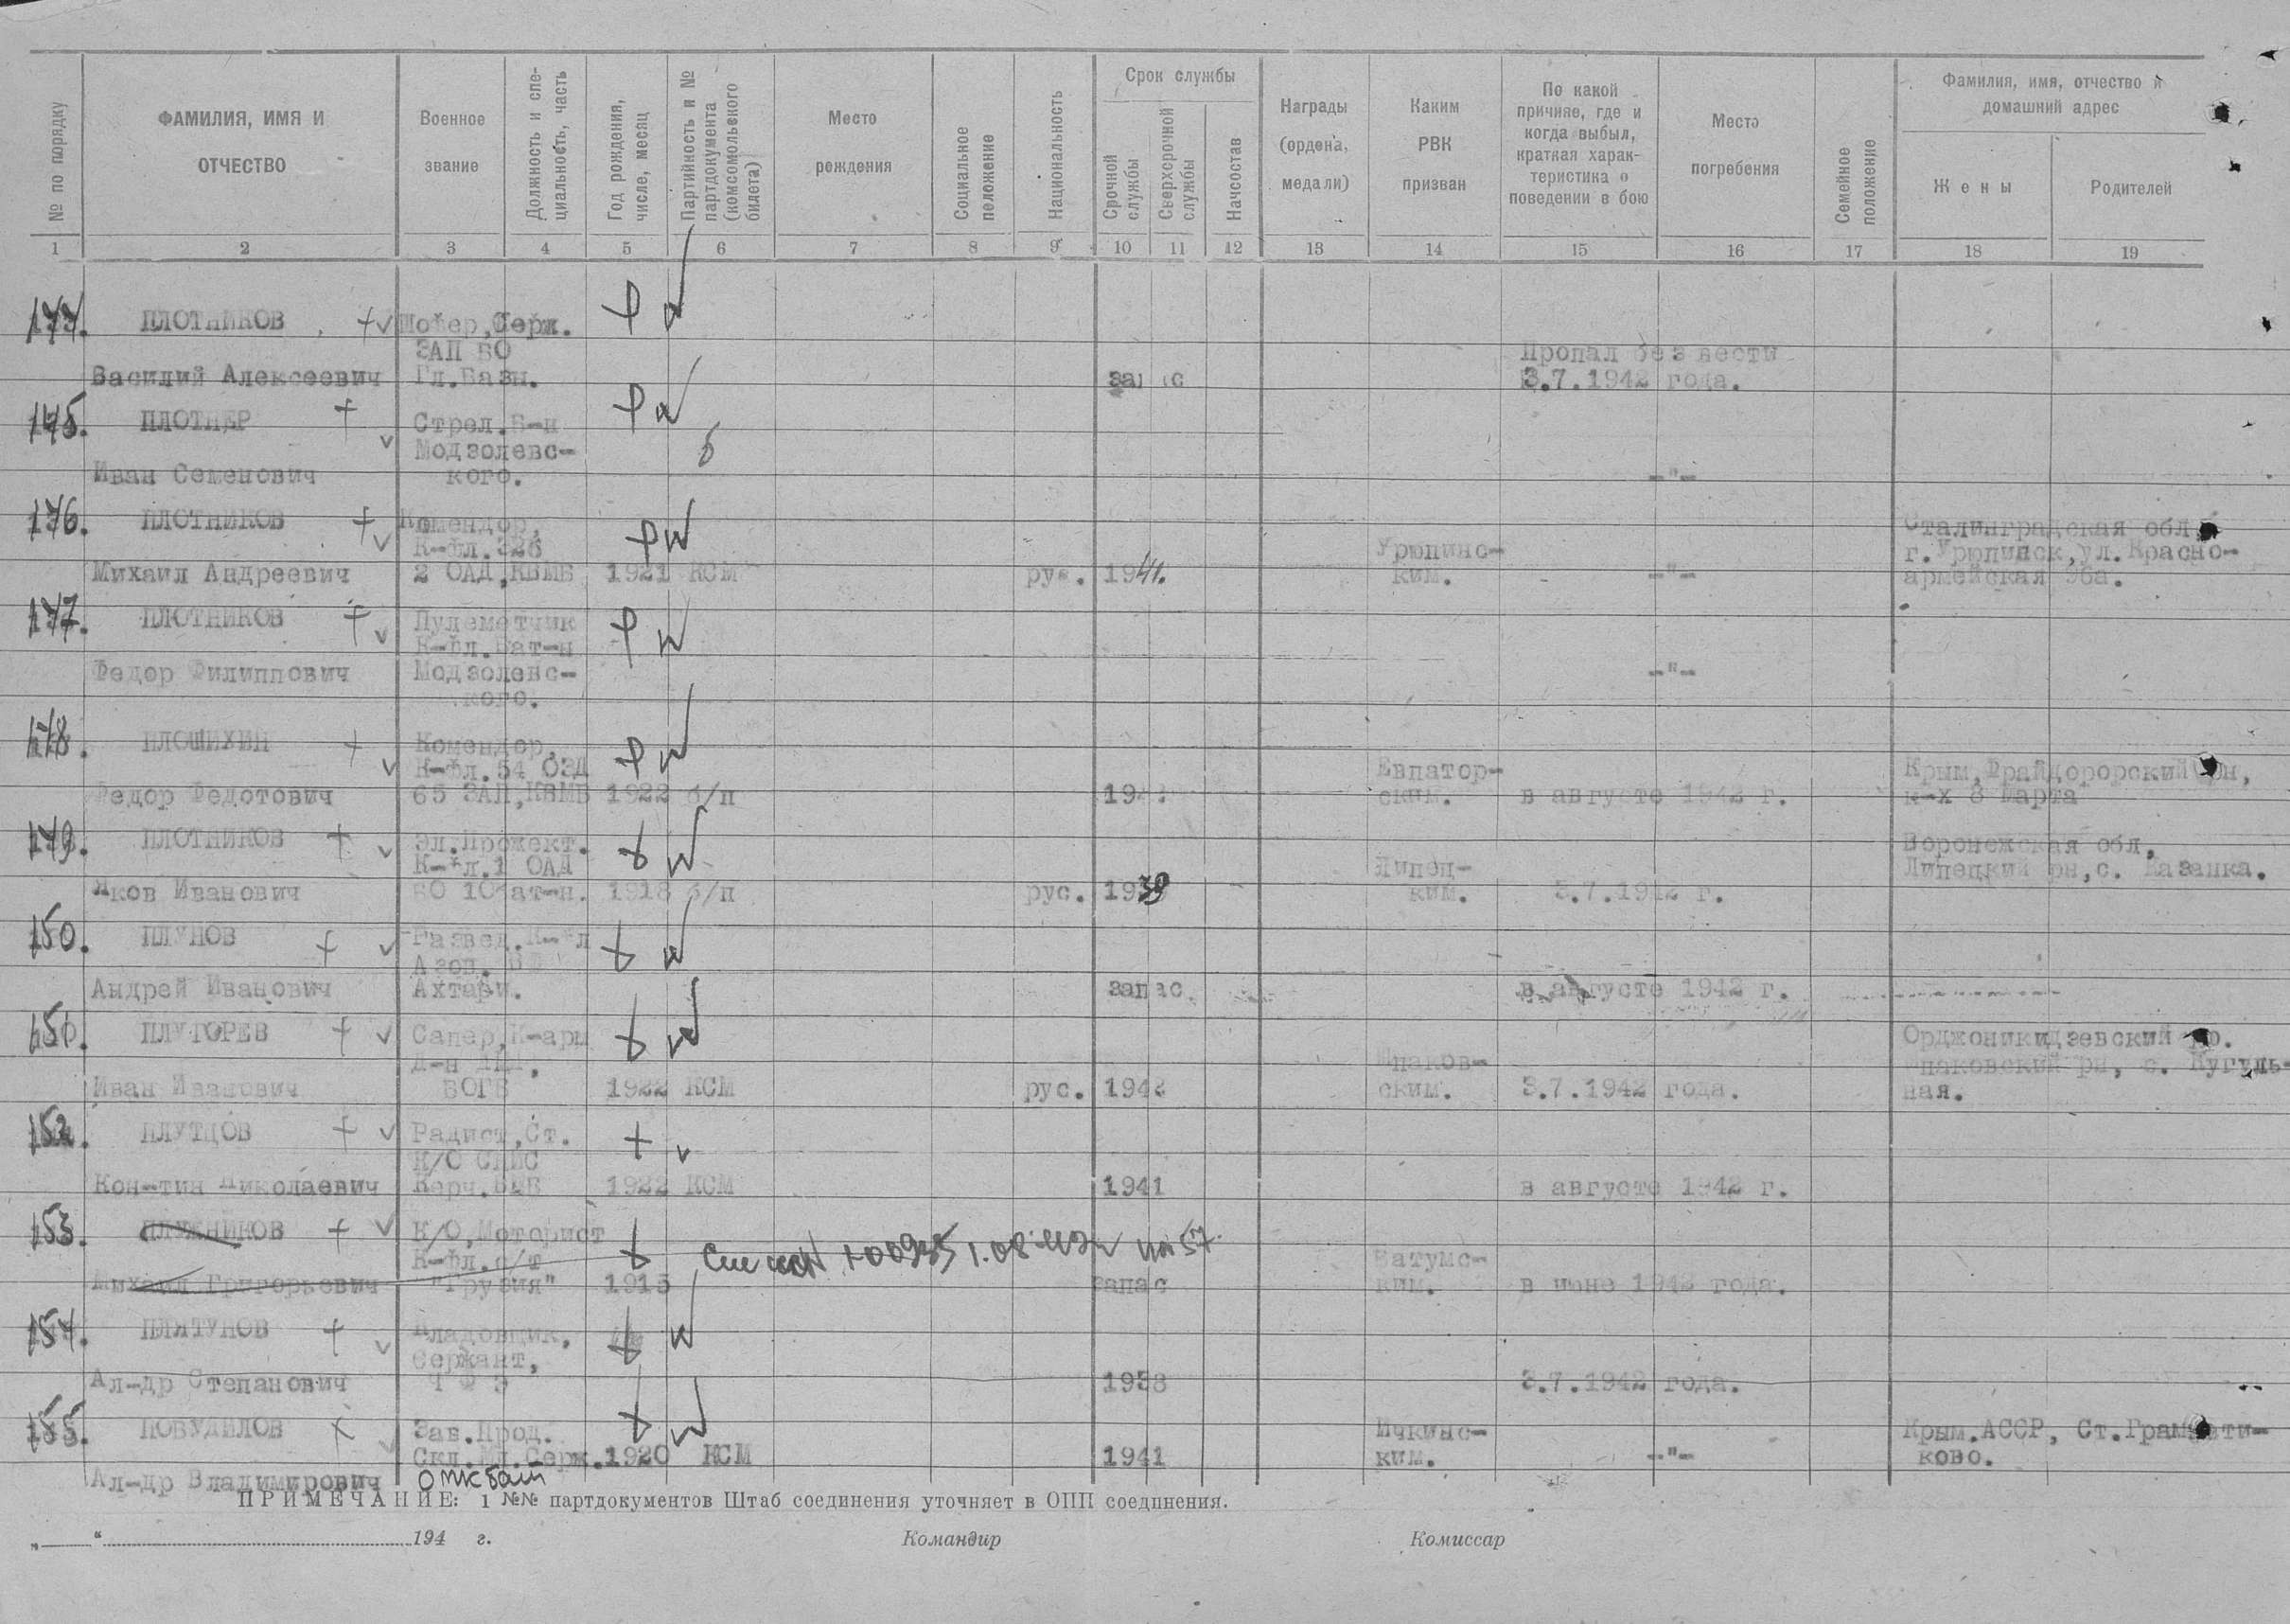 № по порядку
ФАМИЛИЯ, ИМЯ И
ОТЧЕСТВО
Военное
звание
Должность и спе-
циальность, часть
Год рождения,
число, месяц
Партийность и №
партдокумента
(комсомольского
билета)
Место
рождения
Социальное
положение
Национальность
Срок службы
Срочной
службы
Сверхсрочной
службы
Начсостав
Награды
(ордена,
медали)
Каким
РВК
призван
По какой
причине, где и
когда выбыл,
краткая харак-
теристика о
поведении в бою
Место
погребения
Семейное
положение
Фамилия, имя, отчество и
домашний адрес
Жены
Родителей
1 2 3 4 5 6 7 8 9 10 11 12 13 14 15 16 17 18 19
ПЛОТНИКОВ Шофер, Серж.
ЗАП БО Пропал без вести
Василий Алексеевич Гл.Базы. запас 3.7.1942 года.
ПЛОТНЕР Стрел.Б-н
Модзолевс-
Иван Семенович кого. -"-
176. ПЛОТНИКОВ Комендор, Сталинградская обл.
К-фл.326 Урюпинс- г.Урюпинск,ул.Красно-
Михаил Андреевич 2 ОАД,КВМБ 1921 КСМ рус. 1941. ким. -"- армейская
177. ПЛОТНИКОВ Пулеметчик
К-фл.Бат-н
Федор Филиппович Модзолевс- -"-
кого.
ПЛОШИХИН Комендор,
К-фл.54 ОЗД Евпатор- Крым,
Федор Федотович 65 ЗАП,КВМБ 1922 б/п ским. в августе 1942 г. к-х 8 Марта
ПЛОТНИКОВ Эл.Прожект. Воронежская обл,
К-фл.1 ОАД Липец- Липецкий рн,с. Казанка.
Яков Иванович БО 1918 б/п рус. 1939 ким. 3.7.1942 г.
150. ПЛУНОВ Развед.К-фл
Азов.
Андрей Иванович Ахтари. запас в августе 1942 г.
151. ПЛУГОРЕВ Сапер,К-арм Орджоникидзевский
Шпаков- Шпаковский рн, с. Кугуль-
Иван Иванович БОГБ 1922 КСМ рус. 1942 ским. 3.7.1942 года. ная.
152. ПЛУТЦОВ Радист,Ст.
К/О СНиС
Кон-тин Николаевич Керч.ВМБ 1922 КСМ 1941 в августе 1942 г.
153. ПЛУЖНИКОВ К/О,Моторист
К-фл.с/т Батумс-
Михаил Григорьевич "Грузия" 1915 запас ким. в июне 1942 года.
154. ПЛЯТУНОВ Кладовщик,
Сержант,
Ал-др Степанович 1938 3.7.1942 года.
155. ПОБУДИЛОВ Зав.Прод. Ичкинс- Крым.АССР,
Скл.Мл.Серж. 1920 КСМ 1941 ким. -"- ково.
Ал-др Владимирович
ПРИМЕЧАНИЕ: 1 №№ партдокументов Штаб соединения уточняет в ОПП соединения.
„ “ 194 г. Командир Комиссар